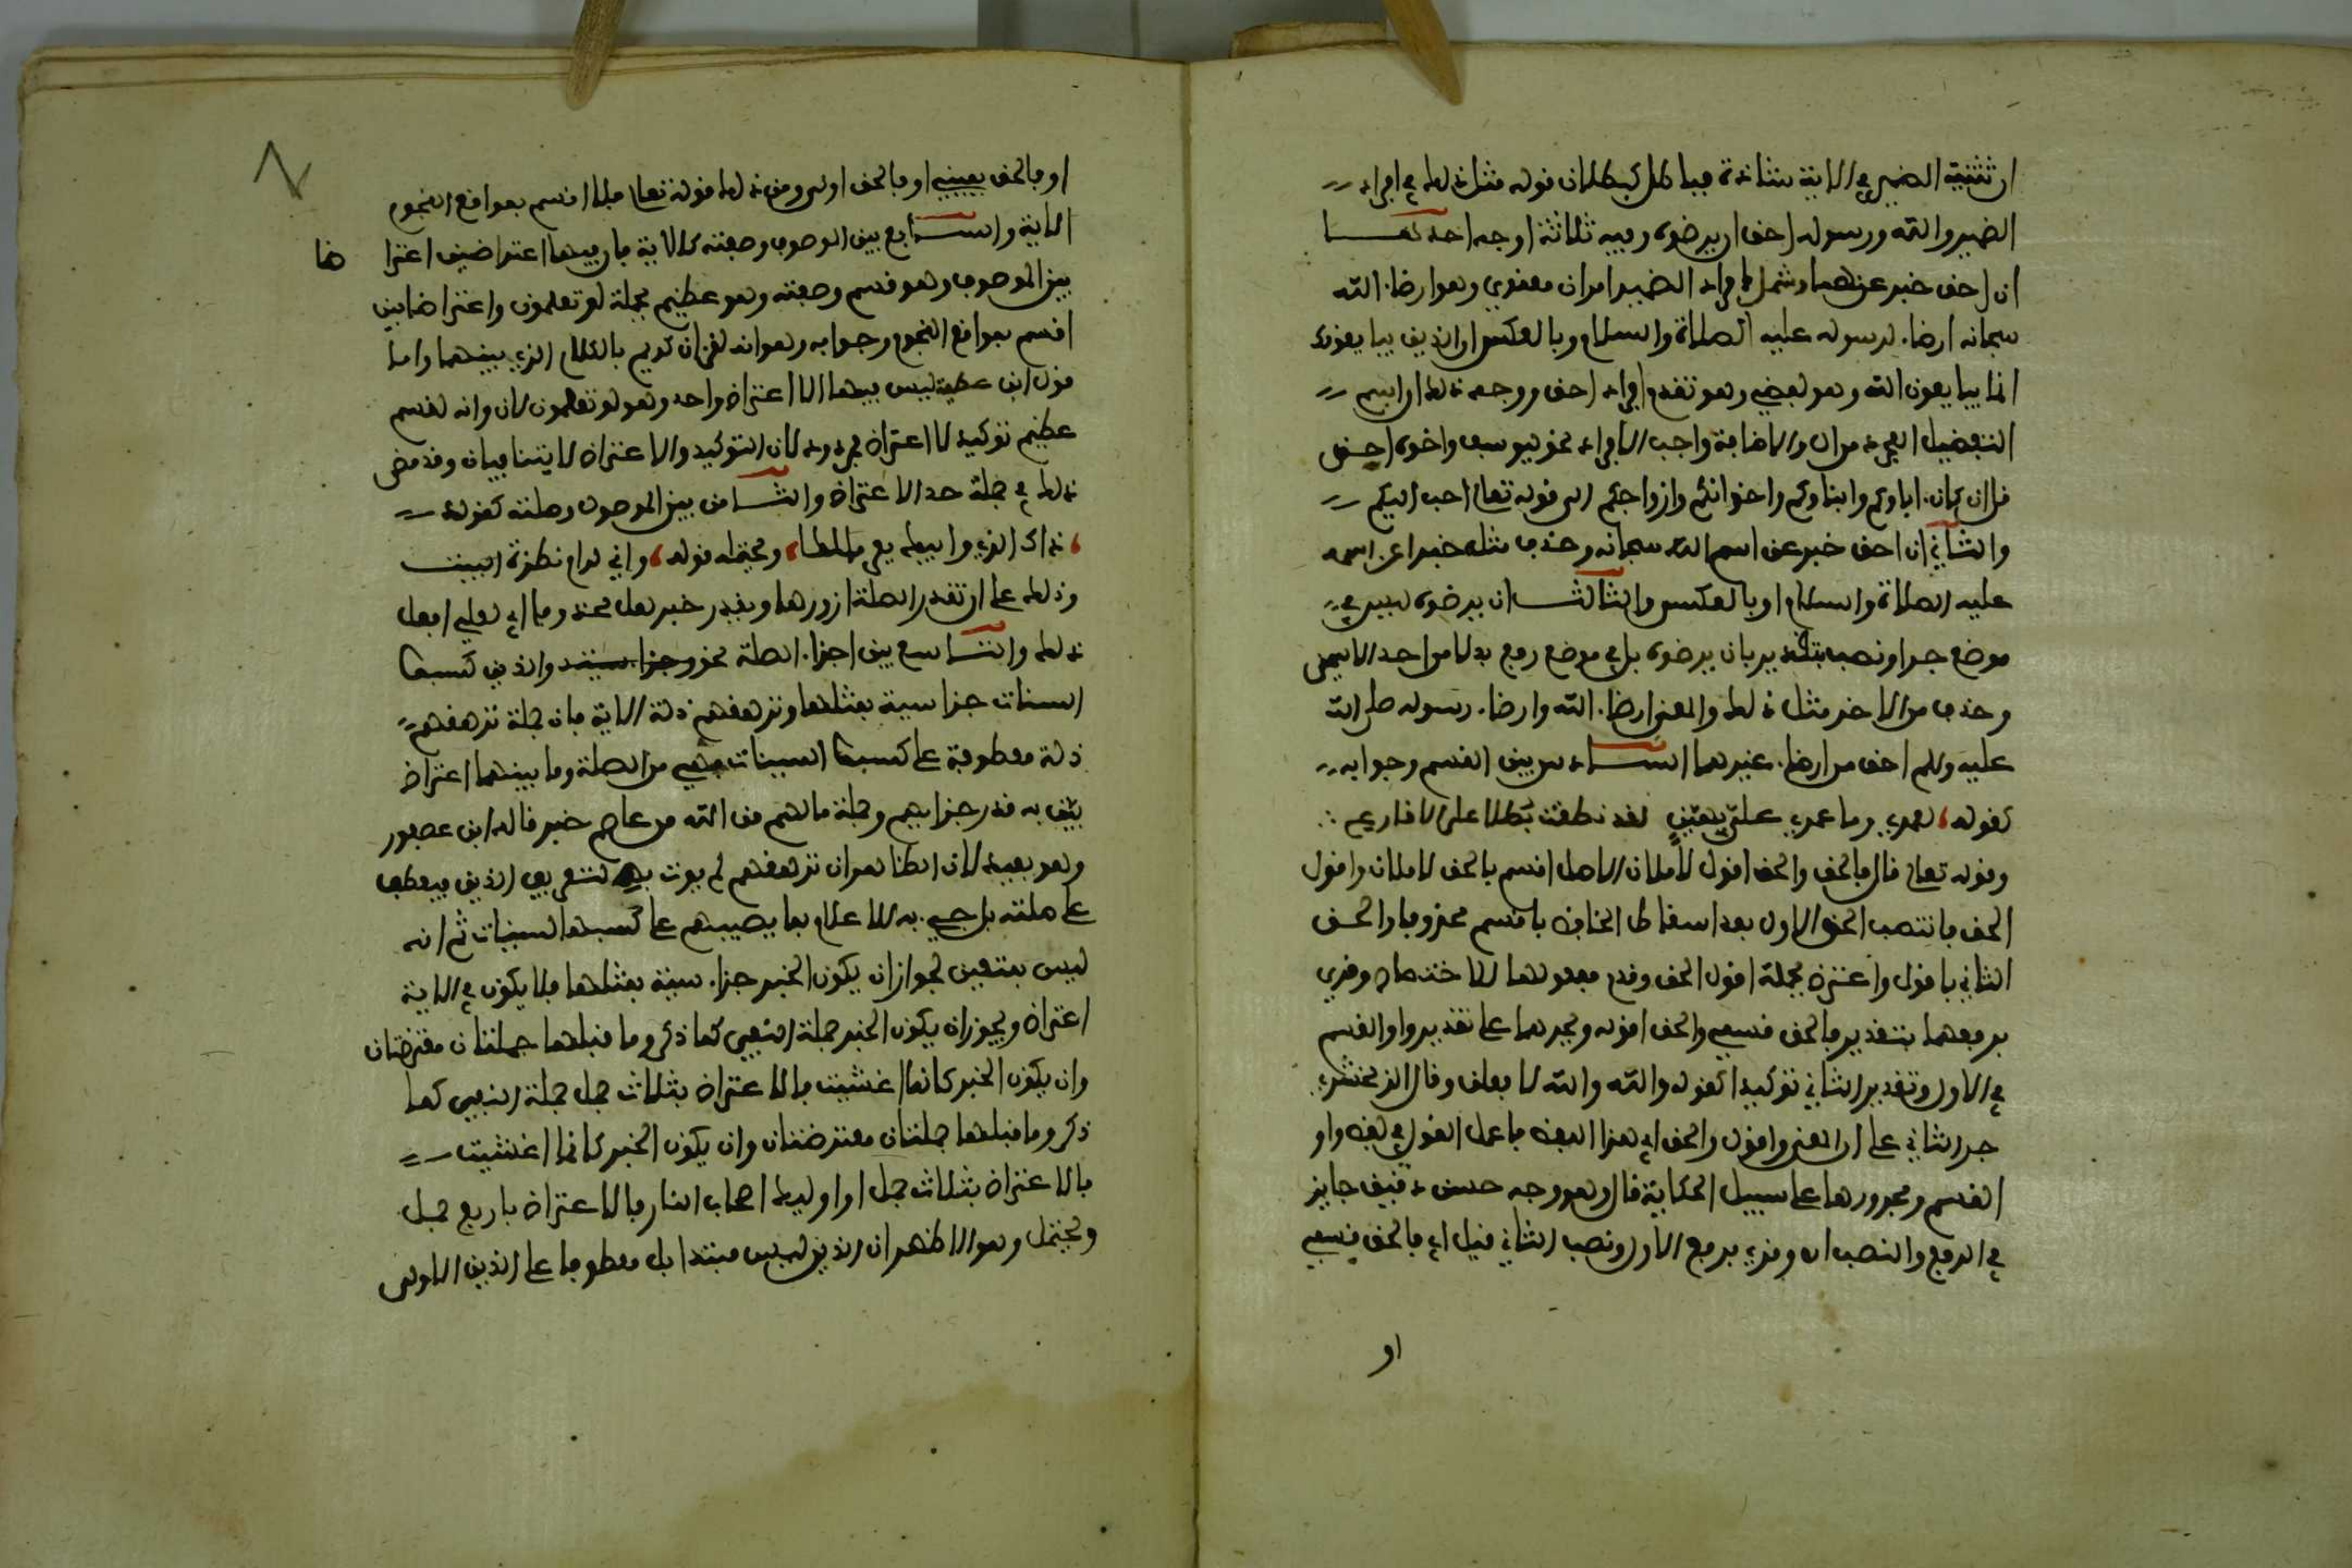 ان تثنية الضمير في الاية شاذة فباطل كبطلان قوله مثل ذلك في افراد
الضمير والله ورسوله احق ان يرضوه وفيه ثلاثة اوجه احدها
ان احق خبر عنهما وسهل افراد الضمير امران معنوي وهو ارضاء الله
سبحانه ارضاء لرسوله عليه الصلاة والسلام وبالعكس ان الذين يبايعونك
انما يبايعون الله ولفظي وهو تقدم افراد احق ووجه ذلك ان اسم
التفضيل المجرد من ال والاضافة واجب الافراد نحو ليوسف واخوه احب
قل ان كان اباوكم وابناوكم واخوانكم وازواجكم الى قوله تعالى احب اليكم
والثاني ان احق خبر عن اسم الله سبحانه وحذف مثله خبرا عن اسمه
عليه الصلاة والسلام او بالعكس والثالث ان يرضوه ليس في
موضع جر او نصب بتقدير بان يرضوه بل في موضع رفع بدلا من احد الاسمين
وحذف من الاخر مثل ذلك والمعنى ارضاء الله وارضاء رسوله صلى الله
عليه وسلم احق من ارضاء غيرهما السادس بين القسم وجوابه
كقوله لعمري وما عمري علي بهين لقد نطقت بطلا علي الاقارع
وقوله تعالى قال فالحق والحق اقول لأملان الاصل اقسم بالحق لاملان واقول
الحق فانتصب الحق الاول بعد اسقاط الخافض باقسم محذوفا والحق
الثاني باقول واعترض بجملة اقول الحق وقدم معمولها للاختصاص وقري
برفعهما بتقدير فالحق قسمي والحق اقوله وبجرهما على تقدير واو القسم
في الاول وتقدير الثاني توكيدا كقوله والله والله لا فعلن وقال الزمخشري
جر الثاني على ان المعنى واقول والحق اي هذا اللفظ فاعمل القول في لفظ واو
القسم ومجرورها على سبيل الحكاية قال وهو وجه حسن دقيق جايز
في الرفع والنصب اه وقري برفع الاول ونصب الثاني قيل اي فالحق قسمي
او
او فالحق يميني او فالحق اولى ومن ذلك قوله تعالى فلا اقسم بمواقع النجوم
الاية والسابع بين الموصوف وصفته كالاية فان فيهما اعتراضين اعترا ضا
بين الموصوف وهو قسم وصفته وهو عظيم بجملة لو تعلمون واعتراضا بين
اقسم بمواقع النجوم وجوابه وهو انه لقرآن كريم بالكلام الذي بينهما واما
قول ابن عطية ليس فيهما الا اعتراض واحد وهو لو تعلمون لان وانه لقسم
عظيم توكيد لا اعتراض فمردود لان التوكيد والاعتراض لا يتنافيان وقد مضى
ذلك في جملة حد الاعتراض والثامن بين الموصول وصلته كقوله
ذاك الذي وابيك يعرف مالكا ويحتمله قوله واني لرام نظرة
وذلك على ان تقدر الصلة ازورها ويقدر خبر لعل محذوفا اي لعلي افعل
ذلك والتاسع بين اجزاء الصلة نحو والذين كسبوا
السيئات جزاء سيئة بمثلها وترهقهم ذلة الاية فان جملة ترهقهم
ذلة معطوفة على كسبوا السيئات فهي من الصلة وما بينهما اعتراض
بين به قدر جزايهم وجملة ما لهم من الله من عاصم خبر قاله ابن عصفور
وهو بعيد لان الظاهر ان ترهقهم لم يوت به لتعريف الذين فيعطف
على صلته بل جيء به للاعلام بما يصيبهم على كسبهم السيئات ثم انه
ليس بمتعين لجواز ان يكون الخبر جزاء سيئة بمثلها فلا يكون في الاية
اعتراض ويجوز ان يكون الخبر جملة النفي كما ذكر وما قبلها جملتان معترضتان
وان يكون الخبر كانما اغشيت فالاعتراض بثلاث جمل جملة النفي كما
ذكر وما قبلها جملتان معترضتان وان يكون الخبر كانما اغشيت
فالاعتراض بثلاث جمل او اوليك اصحاب النار فالاعتراض باربع جمل
ويحتمل وهو الاظهر ان الذين ليس مبتدا بل معطوفا على الذين الاولى